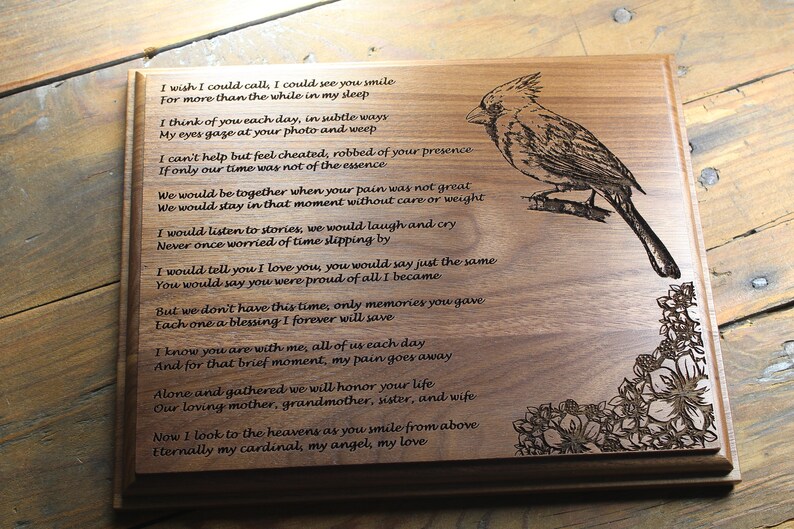 I wish I could call, I could see you smile
For more than the while in my sleep
I think of you each day, in subtle ways
My eyes gaze at your photo and weep
I can't help but feel cheated, robbed of your presence
If only our time was not of the essence
We would be together when your pain was not great
We would stay in that moment without care or weight
I would listen to stories, we would laugh and cry
Never once worried of time slipping by
I would tell you I love you, you would say just the same
You would say you were proud of all I became
But we don't have this time, only memories you gave
Each one a blessing I forever will save
I know you are with me, all of us each day
And for that brief moment, my pain goes away
Alone and gathered we will honor your life
Our loving mother, grandmother, sister, and wife
Now I look to the heavens as you smile from above
Eternally my cardinal, my angel, my love